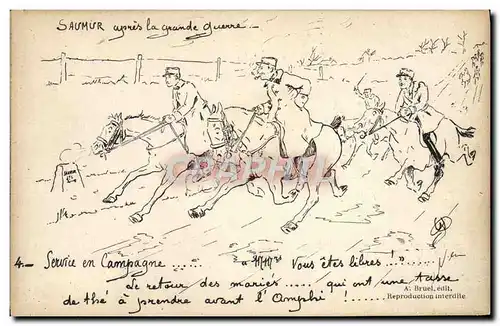 SAUMUR après la grande guerre._
SAUMUR
4._ Service en Campagne ...... Vous êtes libres..!"......
Le retour des mariés ..... qui ont une tasse
de thé à prendre avant l'Amphi !.......
A. Bruel, édit.
Reproduction interdite
CPARAMA